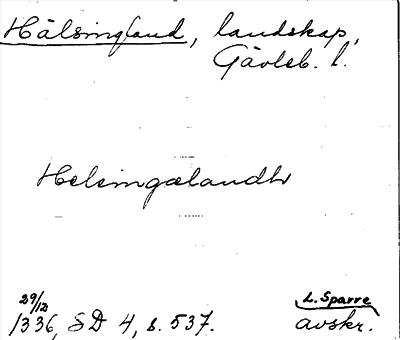 Hälsingland, landskap,
Gävleb. l.
Helsingœlandh
29/12
1336, SD 4, s. 537.
L. Sparre
avskr.